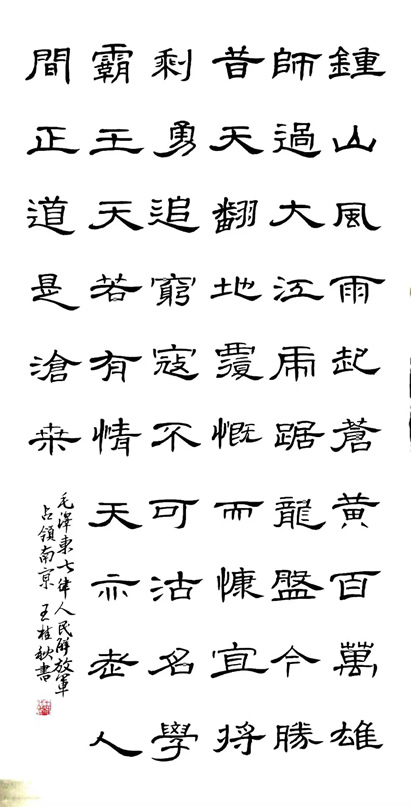 鍾山風雨起蒼黃百萬雄
師過大江虎踞龍盤今勝
昔天翻地覆慨而慷宜將
剩勇追窮寇不可沽名學
霸王天若有情天亦老人
間正道是滄桑
毛澤東七律人民解放軍
占領南京 王桂秋書